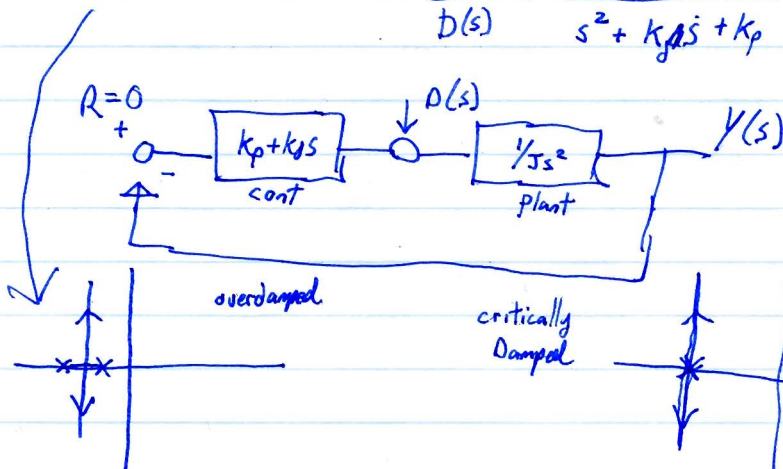 D(s) s² + K_d s + K_p
R=0
+
-
K_p + K_d s
cont
D(s)
1/Js²
plant
Y(s)
overdamped
critically
Damped